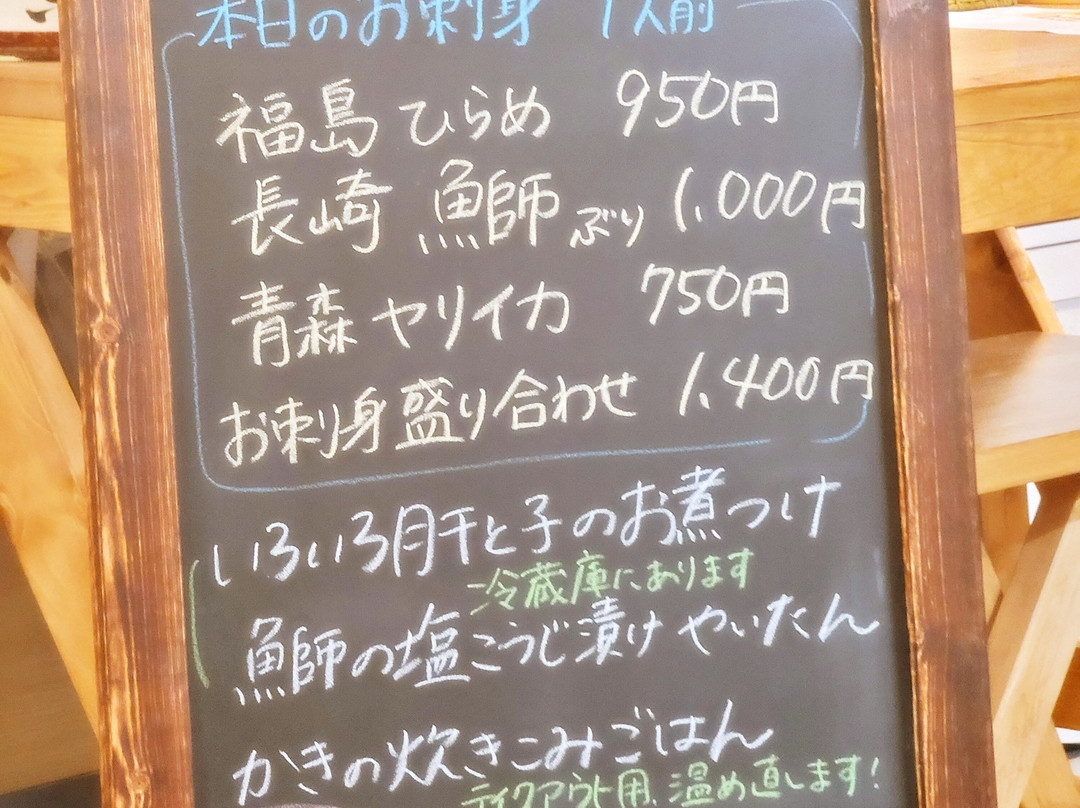 本日のお刺身 1人前
福島 ひらめ 950円
長崎 鰤 ぶり 1,000円
青森 ヤリイカ 750円
お刺身盛り合わせ 1,400円
いろいろ肝と子のお煮つけ
冷蔵庫にあります
鰤の塩こうじ漬け やいたん
かきの炊きこみごはん
テイクアウト用、温め直します!